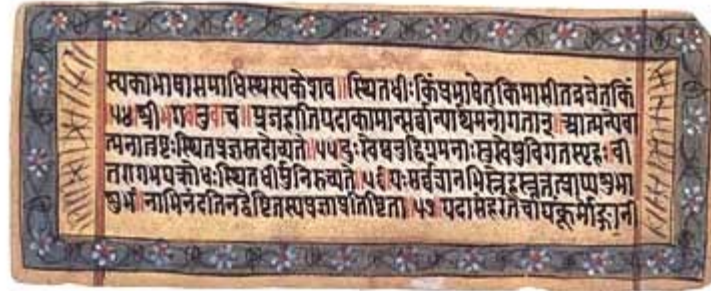 स्यकाभाषासमाधिस्थस्यकेशव॥स्थितधीःकिंप्रभाषेतकिमासीतव्रजेतकिं
५४श्रीभगवानुवाच॥प्रजहातियदाकामान्सर्वान्पार्थमनोगतान्॥आत्मन्येवा
त्मनातुष्टःस्थितप्रज्ञस्तदोच्यते॥५५दुःखेष्वनुद्विग्नमनाःसुखेषुविगतस्पृहः॥वी
तरागभयक्रोधःस्थितधीर्मुनिरुच्यते॥५६यःसर्वत्रानभिस्नेहस्तत्तत्प्राप्यशुभा
शुभं॥नाभिनंदतिनद्वेष्टितस्यप्रज्ञाप्रतिष्ठिता॥५७यदासंहरतेचायंकूर्मोङ्गानी